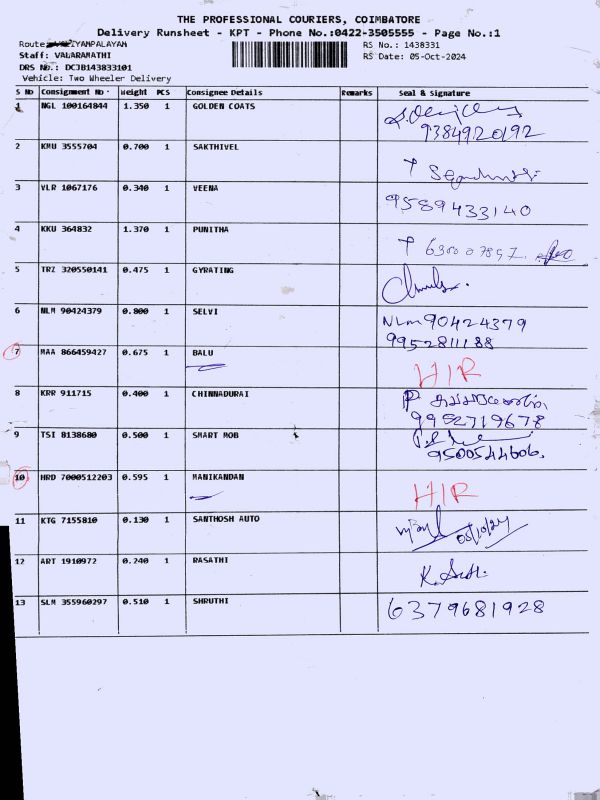 THE PROFESSIONAL COURIERS, COIMBATORE
Delivery Runsheet - KPT - Phone No.:0422-3505555 - Page No.:1
Route:
RS No.: 1438331
Staff: VALARAMATHI
RS Date: 05-Oct-2024
DRS No.: DCJB143833101
Vehicle: Two Wheeler Delivery
S No Consignment No Weight PCS Consignee Details Remarks Seal & signature
1 NGL 100164844 1.350 1 GOLDEN COATS
9384920192
2 KMU 3555704 0.700 1 SAKTHIVEL
3 VLR 1067176 0.340 1 VEENA 9589433140
4 KKU 364832 1.370 1 PUNITHA
5 TRZ 320550141 0.475 1 GYRATING
6 NLM 90424379 0.800 1 SELVI NLM 90424379
9952811188
7 MAA 866459427 0.675 1 BALU H/R
8 KRR 911715 0.400 1 CHINNADURAI
9952719678
9 TSI 8138680 0.500 1 SMART MOB
9500544606.
10 HRD 7000512203 0.595 1 MANIKANDAN H/R
11 KTG 7155810 0.130 1 SANTHOSH AUTO 05/10/24
12 ART 1910972 0.240 1 RASATHI
13 SLM 355960297 0.510 1 SHRUTHI 6379681928